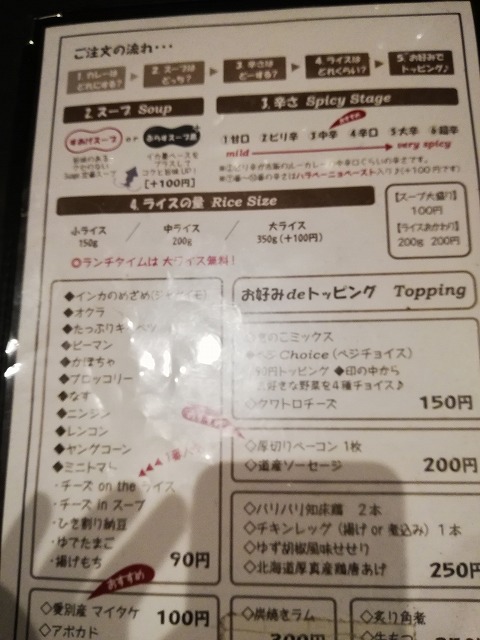 ご注文の流れ・・・
1. カレーは どれにする?
2. スープは どっち?
3. 辛さは どーする?
4. ライスは どれくらい?
5. お好みで トッピング♪
2. スープ Soup
or
[+100円]
3. 辛さ Spicy Stage
おすすめ
1 甘口 2 ピリ辛 3 中辛 4 辛口 5 大辛
mild
very spicy
4. ライスの量 Rice Size
小ライス 150g
中ライス 200g
大ライス 350g (+100円)
◎ランチタイムは 大ライス無料!
【スープ大盛り】
100円
【ライスおかわり】
200g 200円
◆インカのめざめ(ジャガイモ)
◆オクラ
◆たっぷりキャベツ
◆ピーマン
◆かぼちゃ
◆ブロッコリー
◆なす
◆ニンジン
◆レンコン
◆ヤングコーン
◆ミニトマト
・チーズ on the ライス
・チーズ in スープ
・ひき割り納豆
・ゆでたまご
・揚げもち
90円
お好みdeトッピング Topping
◇きのこミックス
Choice (ベジチョイス)
90円トッピング ◆印の中から
お好きな野菜を4種チョイス♪
◇クワトロチーズ
150円
◇厚切りベーコン 1枚
◇道産ソーセージ
200円
◇パリパリ知床鶏 2本
◇チキンレッグ (揚げ or 煮込み) 1本
◇ゆず胡椒風味せせり
◇北海道厚真産鶏唐あげ
250円
おすすめ
◇愛別産 マイタケ
◇アボカド
100円
◇炭焼きラム
◇炙り角煮